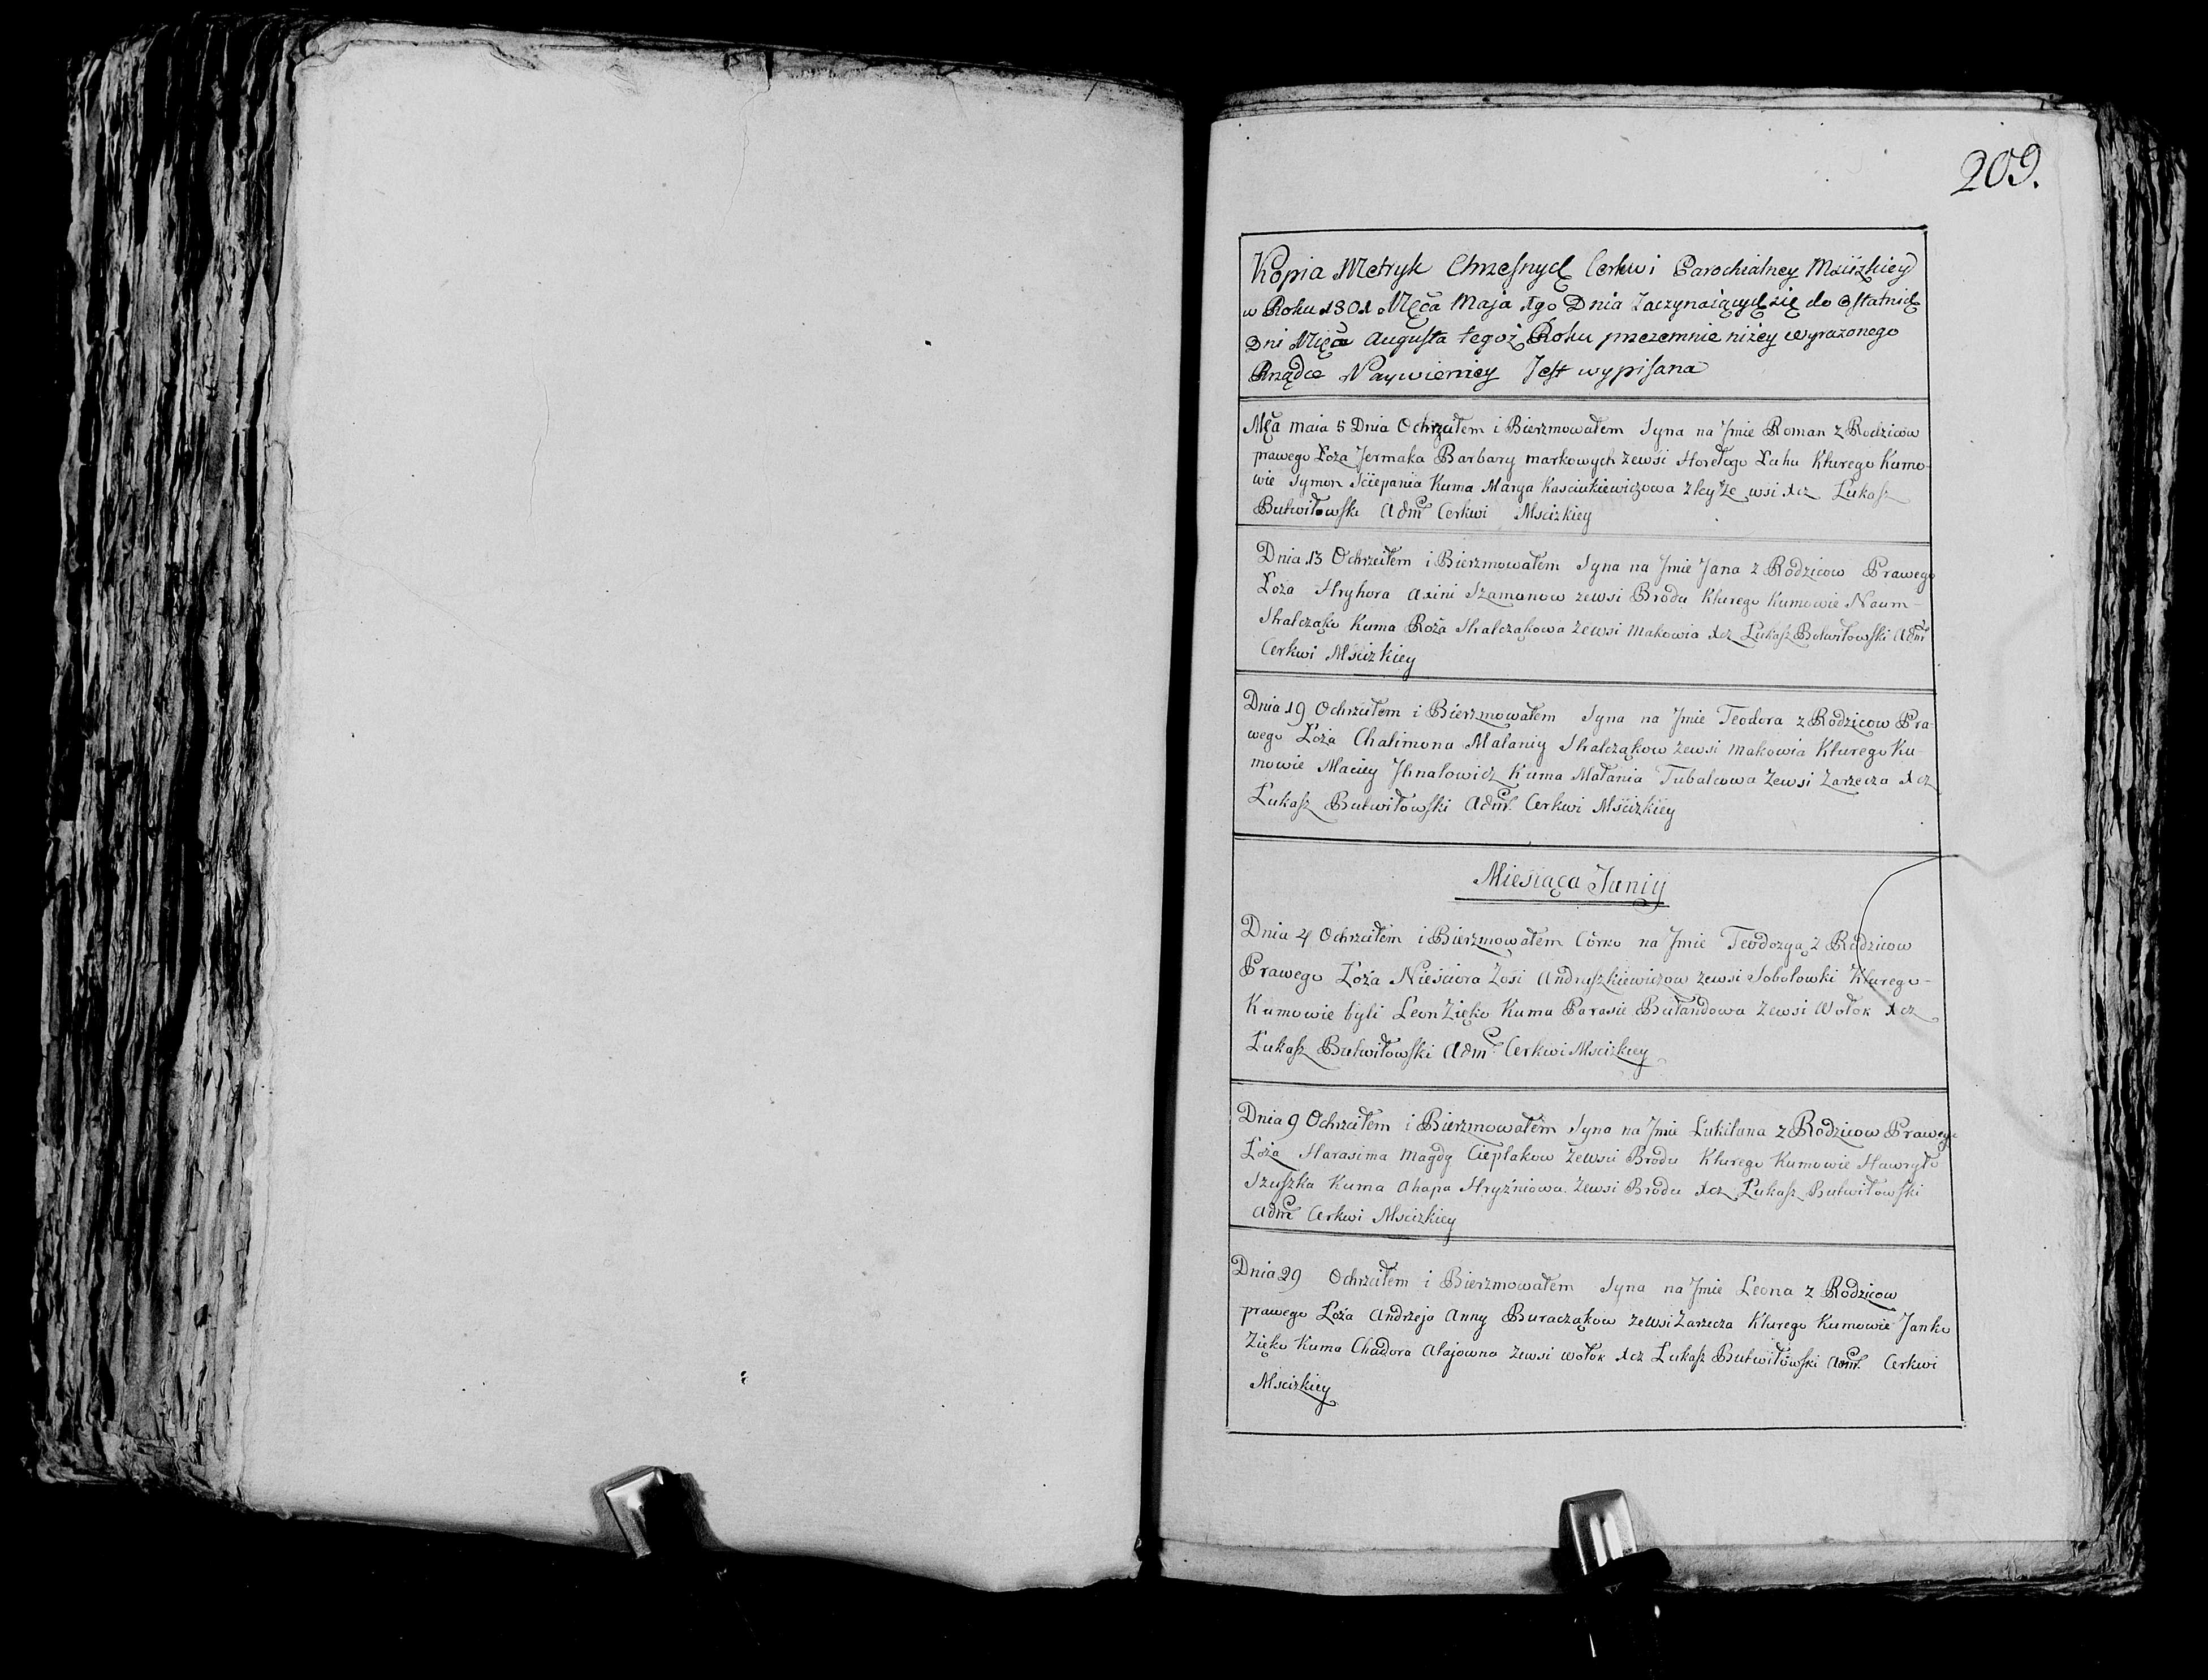 209.
Kopia Metryk Chrzesnych Cerkwi Parochialney Mscizkiey
w Roku 1801 Męca Maja 1go Dnia Zaczynaiących się do ostatnich
Dni Męca Augusta tegoż Roku przezemnie niżey wyrażonego
Rządce Naywierniey Jest wypisana
Męa maia 5 Dnia Ochrzciłem i Bierzmowałem Syna na Jmie Roman z Rodzicow
prawego Łoża Jermaka Barbary markowych zewsi Horełogo Luhu Kturego Kumo-
wie Symon Sciepania Kuma Marya Kasciukiewiczowa z teyże wsi xcz Łukasz
Butwiłowski Adm Cerkwi Mscizkiey
Dnia 13 Ochrzciłem i Bierzmowałem Syna na Jmie Jana z Rodzicow Prawego
Łoża Hryhora axini Szamanow zewsi Brodu Kturego Kumowie Naum-
Skalcząko Kuma Roża Skalcząkowa zewsi makowia xcz Łukasz Butwiłowski Adm
Cerkwi Mscizkiey
Dnia 19 Ochrzciłem i Bierzmowałem Syna na Jmie Teodora z Rodzicow Pra-
wego Łoża Chalimona Malaniy Skalcząkow zewsi makowia Kturego Ku-
mowie Maciey Jhnatowicz Kuma Małania Tubalcowa Zewsi Zarzecza xcz
Łukasz Butwiłowski Adm. Cerkwi Mscizkiey
Miesiąca Juniy
Dnia 4 Ochrzciłem i Bierzmowałem Córko na Jmie Teodozyą z Rodzicow
Prawego Łoża Niesciora Zosi Andruszkiewiczow zewsi Sobołowki Kturego-
Kumowie byli Leon Zięko Kuma Parasie Bułandowa Zewsi Wołok xcz
Łukasz Butwiłowski Adm. Cerkwi Mscizkiey
Dnia 9 Ochrzciłem i Bierzmowałem Syna na Jmie Lukiluna z Rodzicow Prawego
Łoża Harasima Magdy Cieplakow Zewsci Brodu Kturego Kumowie Hawryło
Szuszka Kuma ahapa Hryźniowa Zewsi Brodu xcz Łukasz Butwiłowski
Adm Cerkwi Mscizkiey
Dnia 29 Ochrzciłem i Bierzmowałem Syna na Jmie Leona z Rodzicow
prawego Łoża Andrzeja Anny Buracząkow zewsi Zarzecza Kturego Kumowie Janko
Zięko Kuma Chadora Ałajowna Zewsi wołok xcz Łukasz Butwiłowski Adm. Cerkwi
Mscizkiey